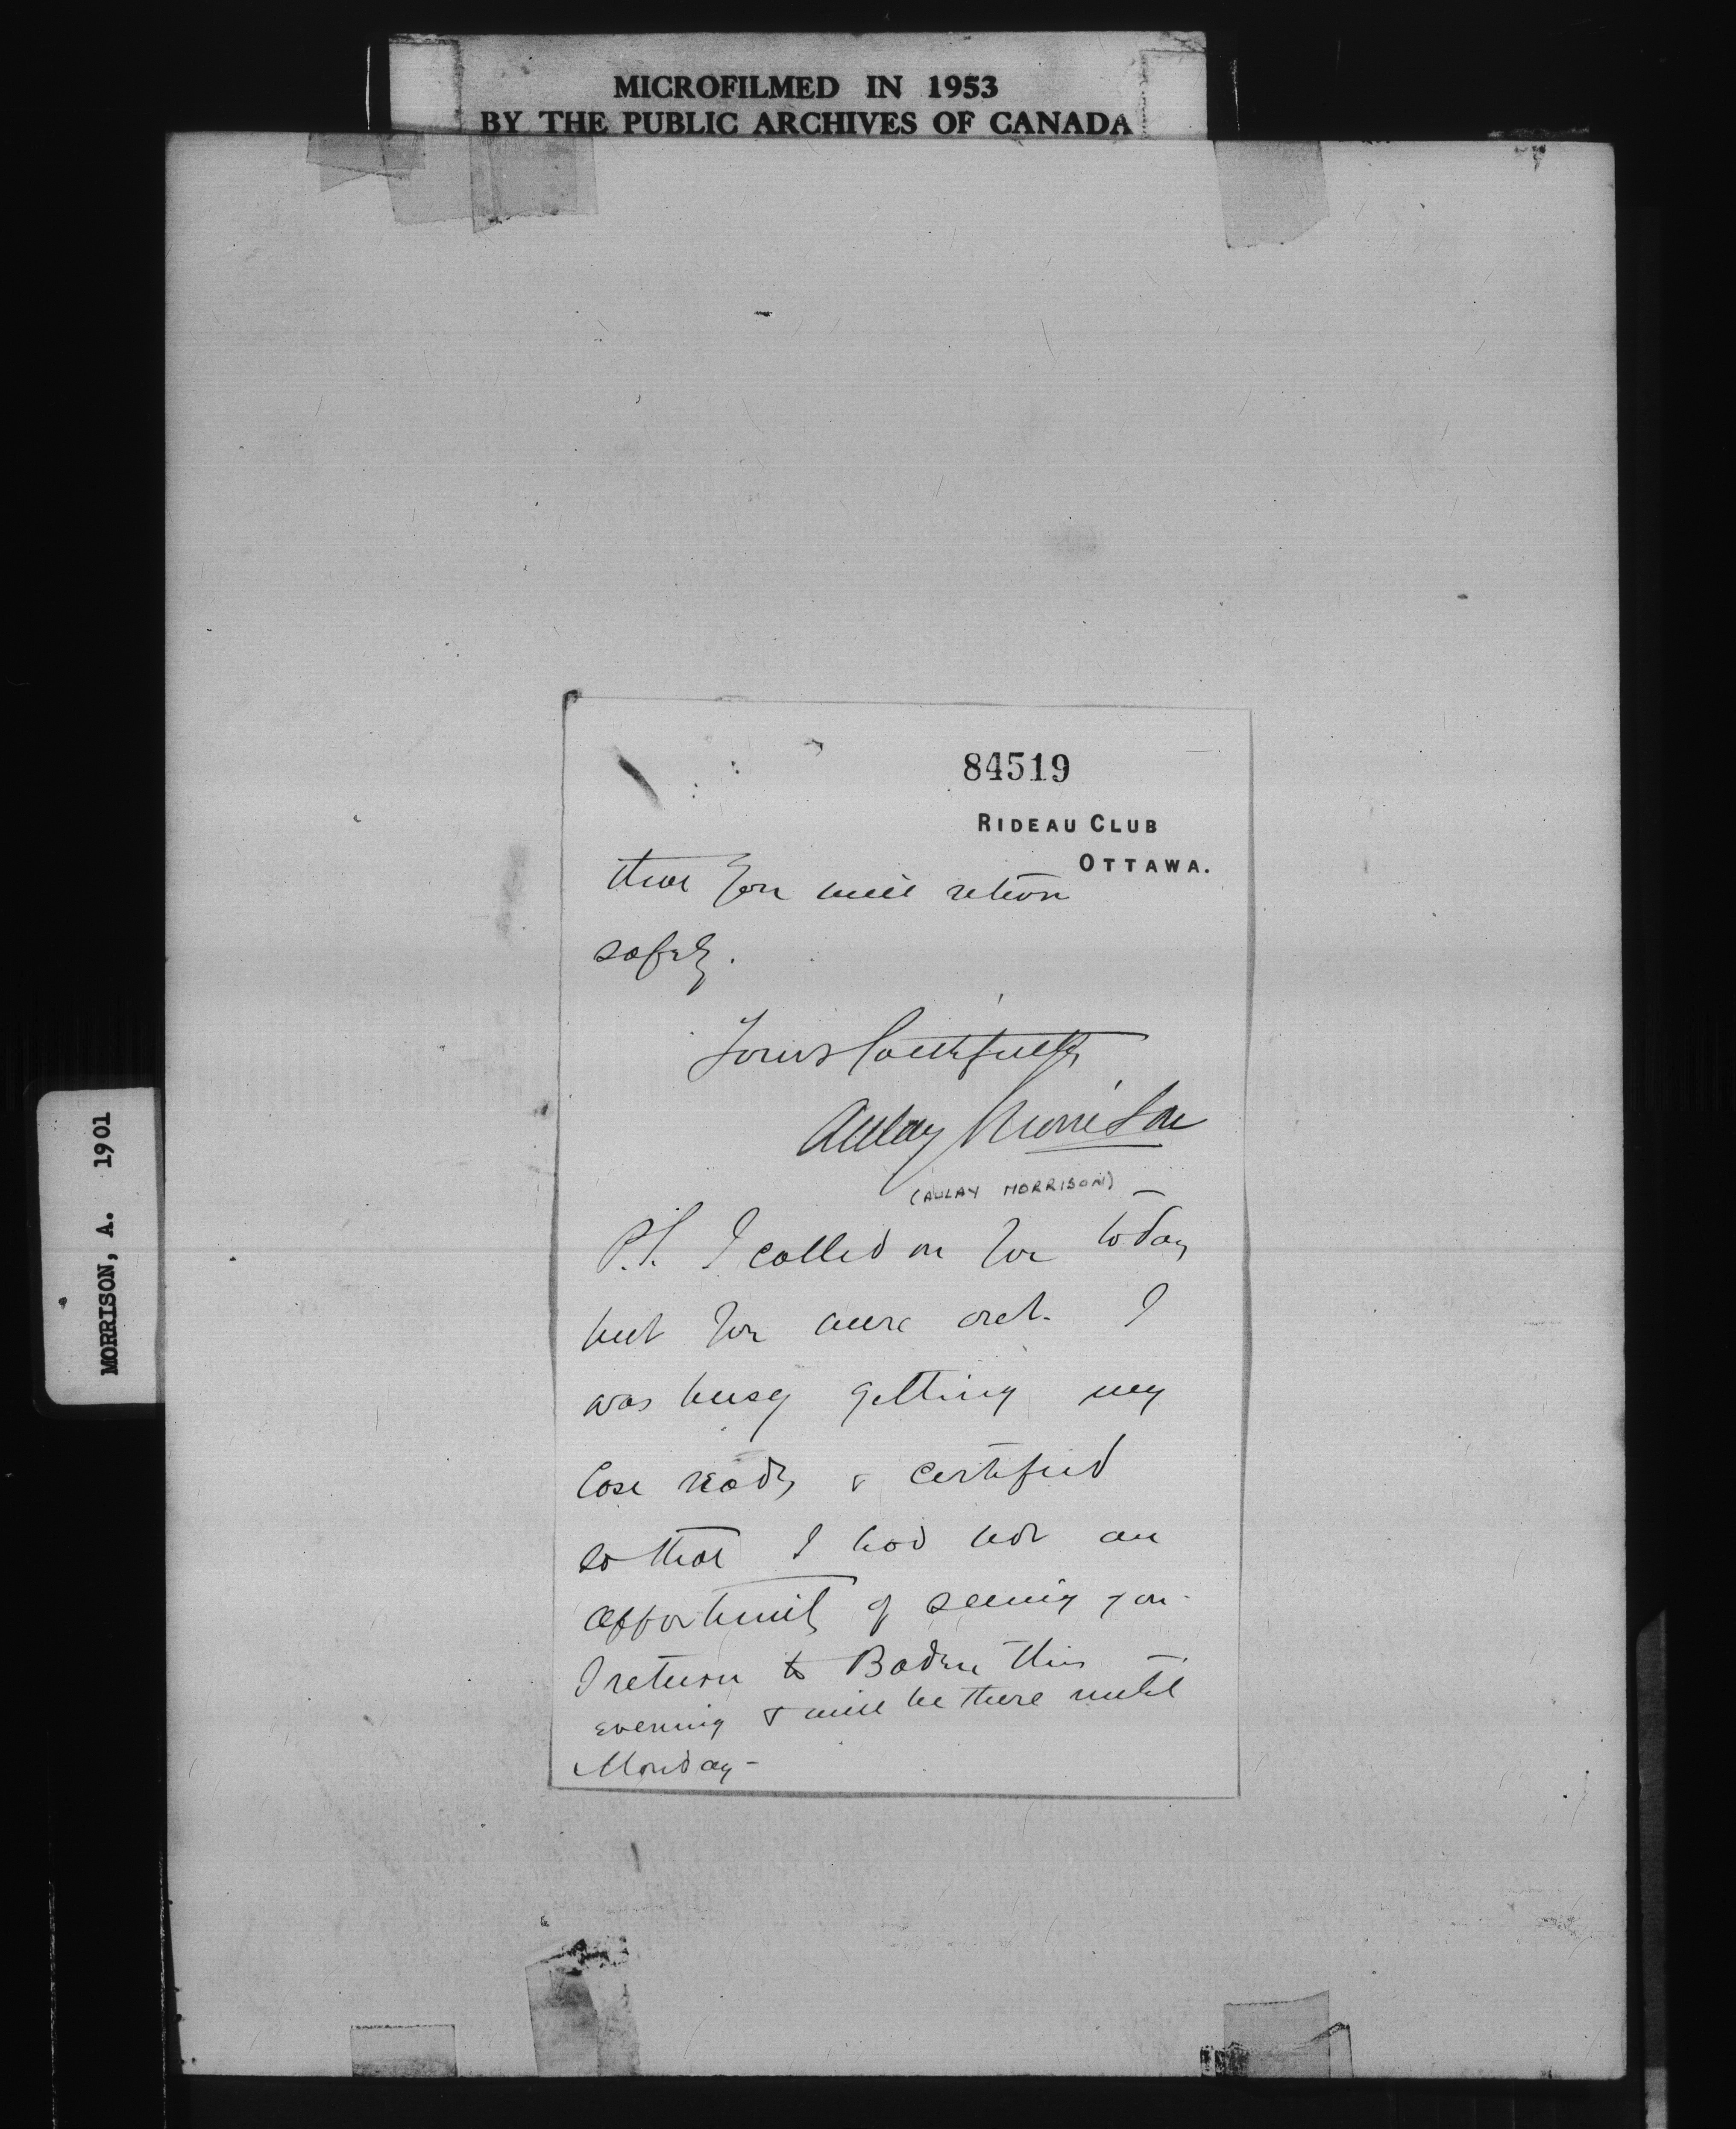 MICROFILMED IN 1953
BY THE PUBLIC ARCHIVES OF CANADA
MORRISON, A. 1901
84519
RIDEAU CLUB
OTTAWA.
that you will return
safely.
Yours faithfully
Aulay Morrison
(AULAY MORRISON)
P.S. I called on you today
but you were out. I
was busy getting my
Case ready & certified
so that I had not an
opportunity of seeing you.
I return to Baden this
evening & will be there until
Monday -